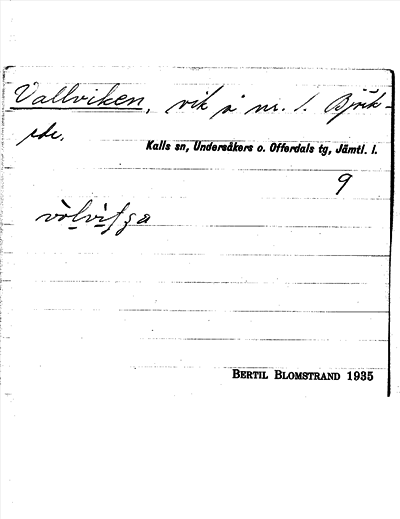 Vallviken, vik å nr. 1. Björk-
ede.
Kalls sn, Undersåkers o. Offerdals tg, Jämtl. l.
9
BERTIL BLOMSTRAND 1935